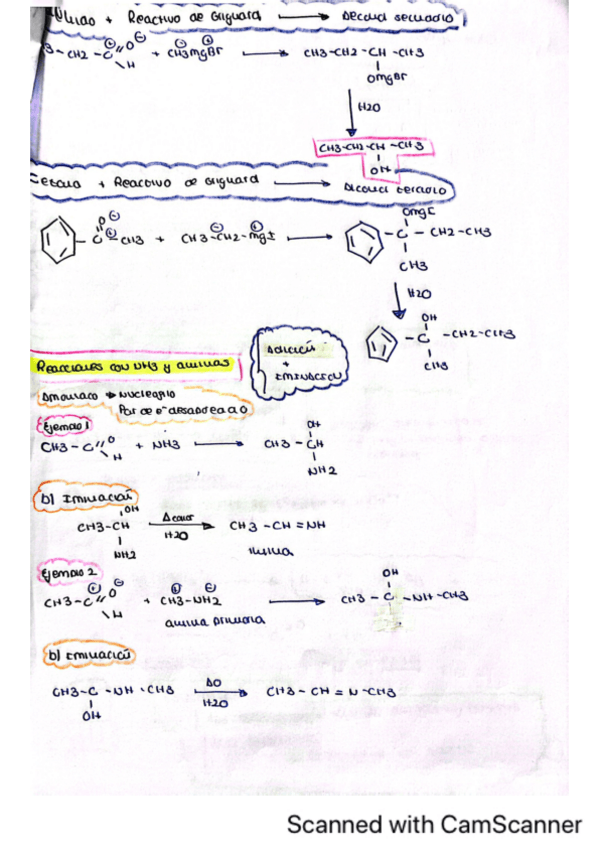 + Reactivo de Griguard → Alcohol secundario
3-CH2-C=O H + CH3MgBr → CH3-CH2-CH-CH3
OMgBr
H2O
CH3-CH2-CH-CH3
OH
Cetona + Reactivo de Griguard → Alcohol terciario
C=O CH3 + CH3-CH2-MgI → C-CH2-CH3
OMgI
CH3
H2O
OH
C-CH2-CH3
CH3
Adición
+
Eliminación
Reacciones con NH3 y aminas
Amoniaco → Nucleofilo
Par de e- desapareado
Ejemplo 1
CH3-C=O H + NH3 → CH3-CH
OH
NH2
b) Eliminación
OH
CH3-CH Δcalor H2O → CH3-CH=NH
NH2
imina
Ejemplo 2
CH3-C=O H + CH3-NH2 → CH3-C-NH-CH3
OH
amina primaria
b) Eliminación
CH3-C-NH-CH3 H2O → CH3-CH=N-CH3
OH
Scanned with CamScanner